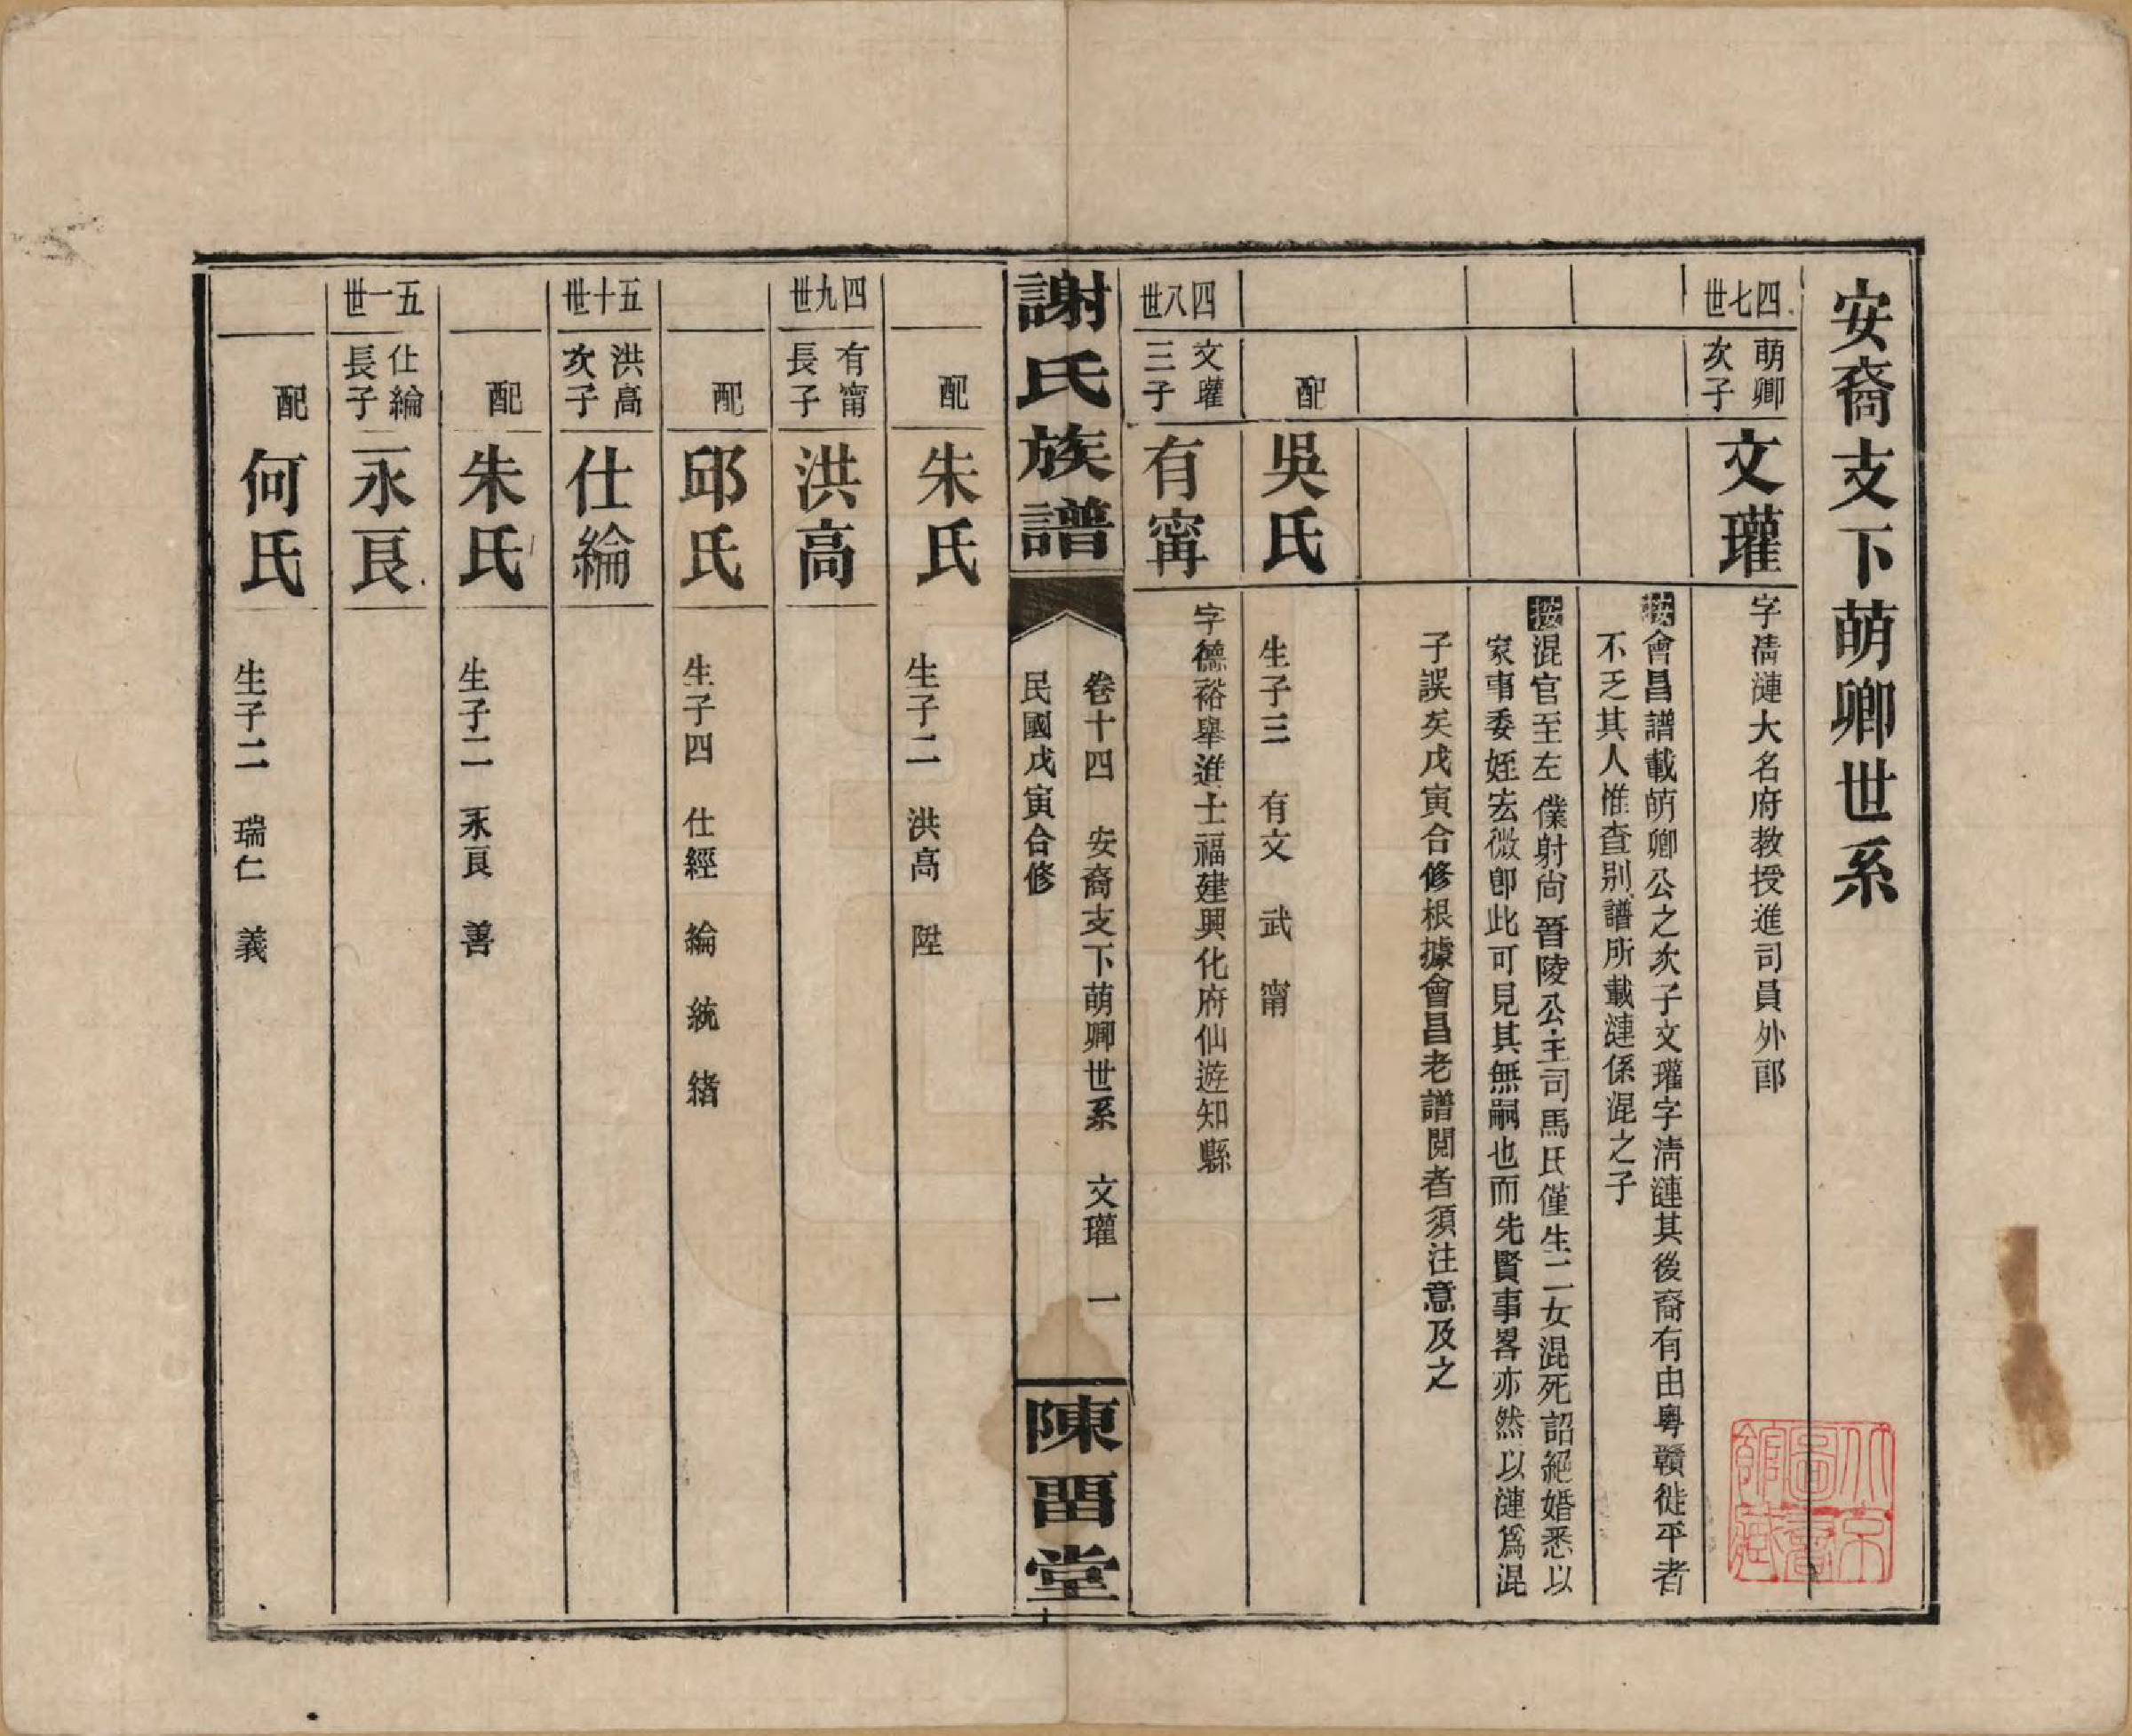 安裔支下萌卿世系
四七世
萌卿
次子
文瓘
字清漣大名府教授進司員外郎
按會昌譜載萌卿公之次子文瓘字清漣其後裔有由粵贛徙平者
不乏其人惟查別譜所載漣係混之子
按混官至左僕射尚晉陵公主司馬氏僅生二女混死詔絕婚悉以
家事委姪宏微卽此可見其無嗣也而先賢事畧亦然以漣爲混
子誤矣戊寅合修根據會昌老譜閱者須注意及之
配
吳氏
生子三 有文 武 甯
四八世
文瓘
三子
有甯
字德裕舉進士福建興化府仙遊知縣
謝氏族譜
卷十四 安裔支下萌卿世系 文瓘 一
民國戊寅合修
陳畱堂
配
朱氏
生子二 洪高 陞
四九世
有甯
長子
洪高
配
邱氏
生子四 仕經 綸 統 緒
五十世
洪高
次子
仕綸
配
朱氏
生子二 永良 善
五一世
仕綸
長子
永良
配
何氏
生子二 瑞仁 義
北京
圖書
館藏